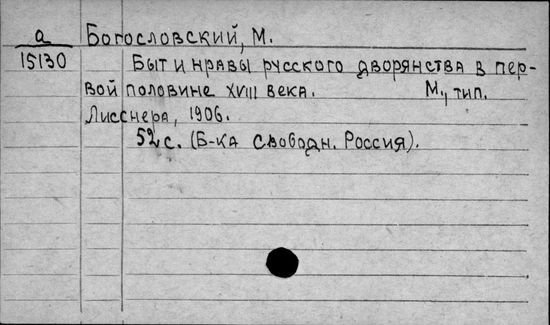 а Богословский, М.
15130 Быт и нравы русского дворянства в пер-
вой половине XVIII века. М., тип.
Лисснера, 1906.
52 с. (Б-ка Свободн. Россия).